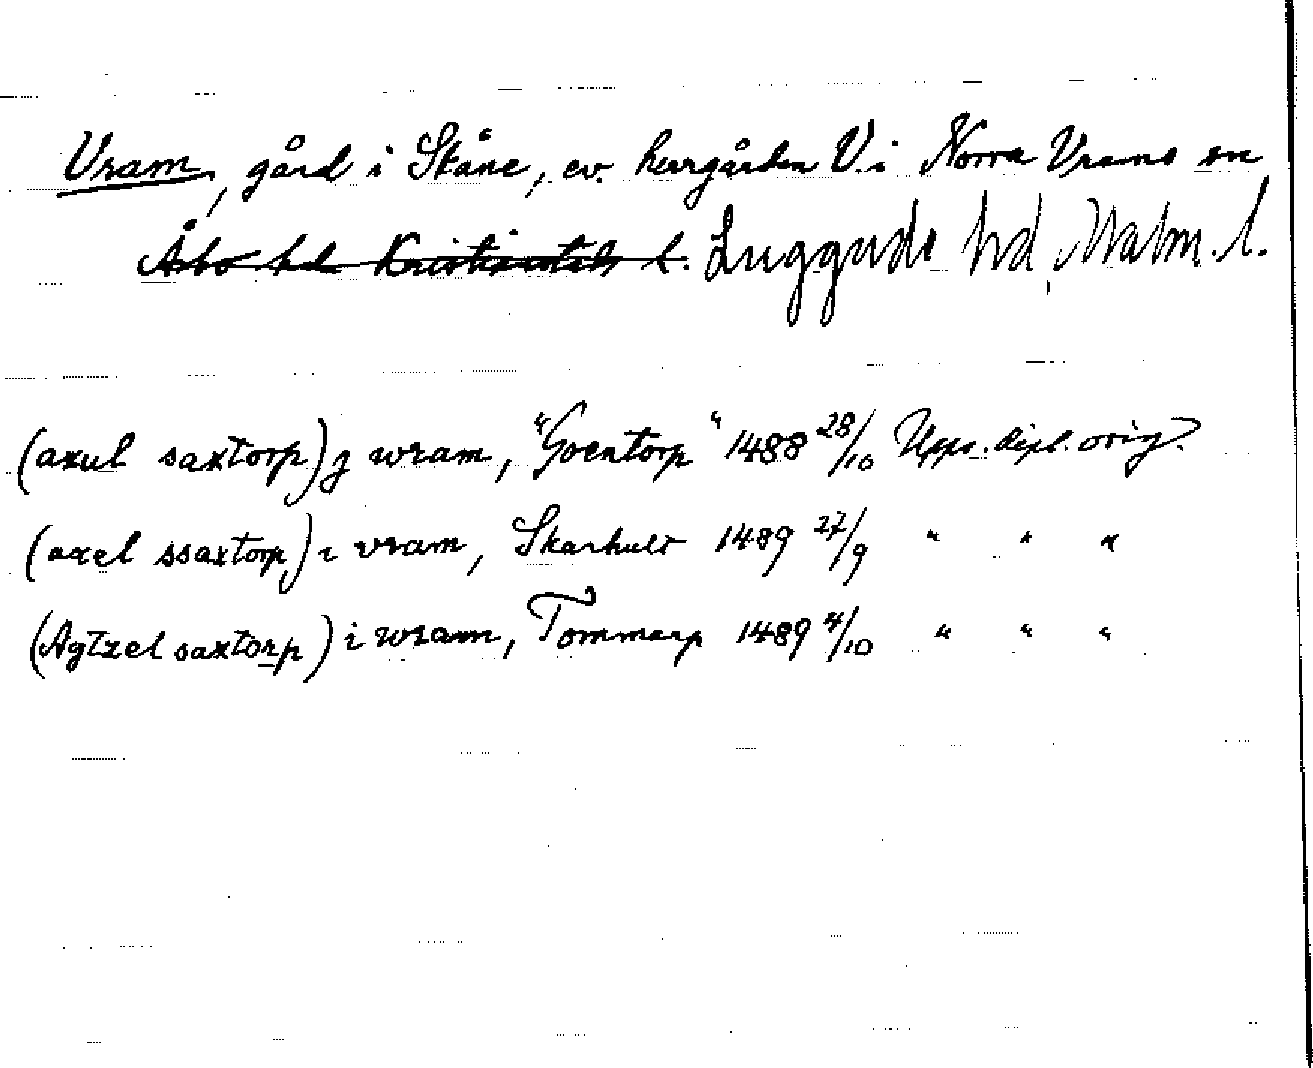 Vram, gård i Skåne, ev. herrgården V. i Norra Vrams sn
Åsbo hd Kristianstads l. Luggude hd, Malm. l.
(axul saxtorp) j wram, "Goentorp" 1488 28/10 Upps. dipl. orig.
(axel ssaxtorp) i vram, Skarhult 1489 27/9 " " "
(Agtzel saxtorp) i wram, Tommarp 1489 4/10 " " "